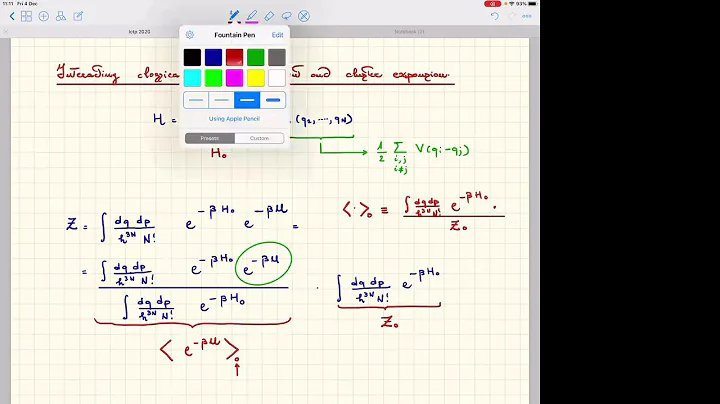 11:11 Fri 4 Dec
93%
Ictp 2020
Notebook (2)
Fountain Pen Edit
Using Apple Pencil
Presets Custom
Interacting classical and cluster expansion.
H = (q₁, ..., qN)
H₀
→ 1/2 Σ V(qi-qj)
i,j
i≠j
Z = ∫ dq dp / h³ᴺ N! e^{-βH₀} e^{-βU} =
<·>₀ ≡ ∫ dq dp / h³ᴺ N! e^{-βH₀} · / Z₀
= ∫ dq dp / h³ᴺ N! e^{-βH₀} e^{-βU} / ∫ dq dp / h³ᴺ N! e^{-βH₀} · ∫ dq dp / h³ᴺ N! e^{-βH₀}
Z₀
< e^{-βU} >₀